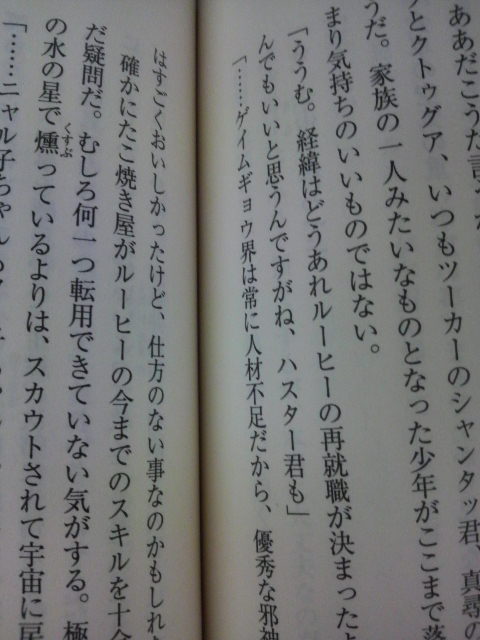 ああだこうだ言
とクトゥグア、いつもツーカーのシャンタッ君、真尋の
うだ。家族の一人みたいなものとなった少年がここまで落
まり気持ちのいいものではない。
「ううむ。経緯はどうあれルーヒーの再就職が決まったと
んでもいいと思うんですがね、ハスター君も」
「……ゲイムギョウ界は常に人材不足だから、優秀な邪神
はすごくおいしかったけど、仕方のない事なのかもしれ
確かにたこ焼き屋がルーヒーの今までのスキルを十全
だ疑問だ。むしろ何一つ転用できていない気がする。極
の水の星で燻くすぶっているよりは、スカウトされて宇宙に戻
「……ニャル子ちゃん